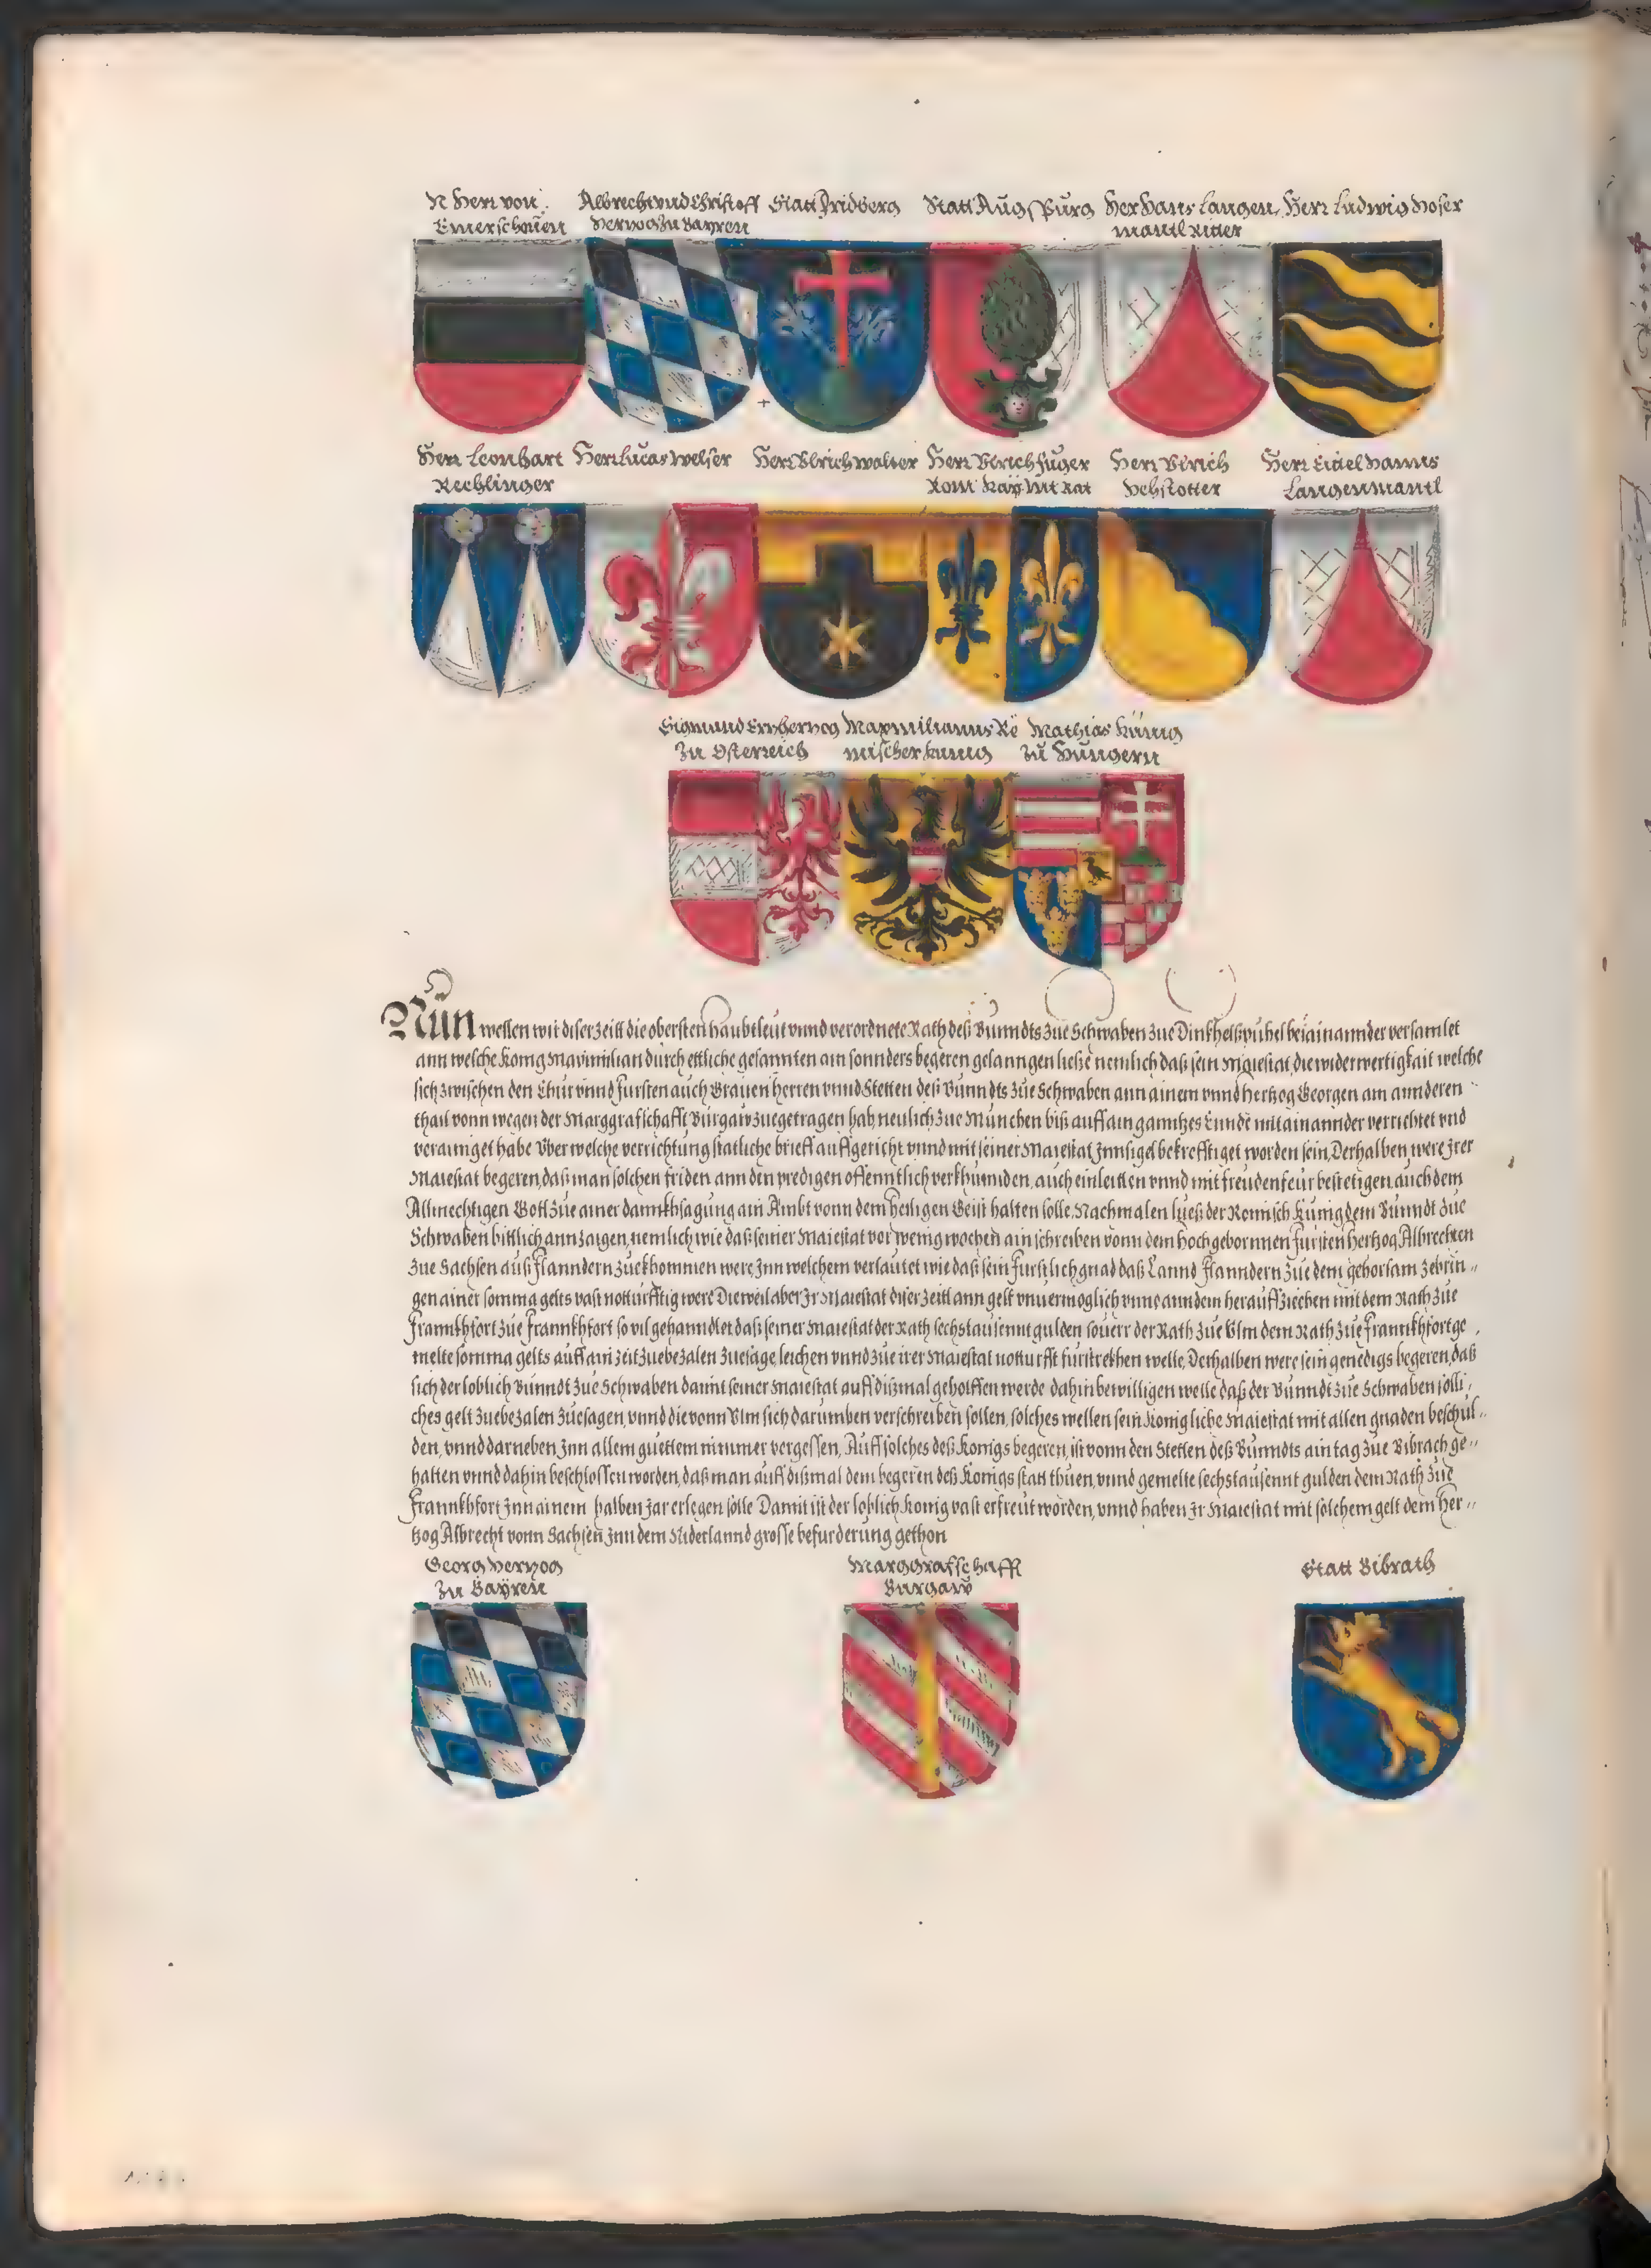 N Herr von Emerschouen
Albrecht vnd Christoff Hertzog Zu Bayren
Statt Fridberg
Statt Augspurg
Her Hans Langenmantl Ritter
Herr Ludwig Hoser
Herr Leonhart Rechlinger
Herr Lucas Welser
Herr Vlrich Walter
Herr Vlrich Fuger Rom Kay Mt Rat
Herr Vlrich Hehstotter
Herr Eitel Hanns Langenmantl
Sigmund Ertzhertzog Zu Osterreich
Maxmilianus Römischer Kunig
Mathias Künig Zu Hungern
Nun wellen wir diser zeitt die obersten haubtleut vnnd verordnete Räth deß Bunndts zue Schwaben zue Dinkhelspuhel bei ainannder versamlet
ann welche König Maximilian durch ettliche gesannten ain sonnders begeren gelanngen ließe nemlich daß sein Maiestat, die widerwertigkait welche
sich zwischen den Chur vnnd Fursten auch Grauen Herren vnnd Stetten deß Bunndts zue Schwaben ann ainem vnnd Hertzog Georgen am annderen
thail vonn wegen der Marggrafschafft Burgaw zuegetragen hab neulich zue Munchen biß auff ain ganntzes Ennde mit ainannder verrichtet vnd
veraniget habe Vber welche verrichtung statliche brieff auffgericht vnnd mit seiner Maiestat Innsigel bekrefftiget worden sein, Derhalben were Irer
Maiestat begeren, daß man solchen friden ann den predigen offenntlich verkhunnden, auch einleitten vnnd mit freudenfeur bestetigen, auch dem
Allmechtigen Gott zue ainer dannkhsagung ain Ambt vonn dem heiligen Geist halten solle, Nachmalen ließ der Romisch Kunig dem Bunndt zue
Schwaben bittlich annzaigen, nemlich wie daß seiner Maiestat vor wenig wochen ain schreiben vonn dem hochgebornnen Fursten Hertzog Albrechten
zue Sachsen auß Flanndern zuekhommen were, Inn welchem verlautet wie daß sein Furstlich gnad daß Lannd Flanndern zue dem gehorsam zebrin-
gen ainer somma gelts vast notturfftig were Dieweil aber Ir Maiestat diser zeitt ann gelt vnuermoglich vnnd ann dem herauffziechen mit dem Rath zue
Frannkhfort zue Frannkhfort so vil gehanndlet daß seiner Maiestat der Rath sechstausennt gulden souerr der Rath zue Vlm dem Rath zue Frannkhfort ge
melte somma gelts auff ain zeit zuebezalen zuesage, leichen vnnd zue irer Maiestat notturfft furstrekhen welle, Derhalben were sein genedigs begeren, daß
sich der loblich Bunndt zue Schwaben damit seiner Maiestat auff dißmal geholffen werde dahin bewilligen welle daß der Bunndt zue Schwaben solli-
ches gelt zuebezalen zuesagen, vnnd die vonn Vlm sich darumben verschreiben sollen, solches wellen sein Konigliche Maiestat mit allen gnaden beschul-
den, vnnd darneben, Inn allem guettem nimmer vergessen, Auff solches deß Konigs begeren, ist vonn den Stetten deß Bunndts ain tag zue Bibrach ge-
halten vnnd dahin beschlossen worden, daß man auff dißmal dem begeren deß Konigs statt thuen, vnnd gemelte sechstausennt gulden dem Rath zue
Frannkhfort Inn ainem halben Jar erlegen solle Damit ist der loblich Konig vast erfreut worden, vnnd haben Ir Maiestat mit solchem gelt dem Her-
tzog Albrecht vonn Sachsen Inn dem Niderlannd grosse befurderung gethon
Georg Hertzog Zu Bayren
Marggrafschafft Burgaw
Statt Bibrath